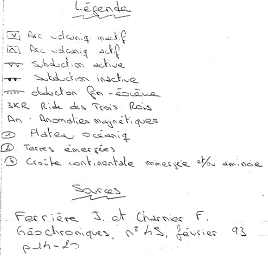 Légende
V Arc volcaniq inactif
A Arc volcaniq actif
Subduction active
Subduction inactive
obduction fin-éocène
3KR Ride des Trois Rois
An : Anomalies magnétiques
① Plateau océaniq
② Terres émergées
③ Croûte continentale immergée et/ou amincie
Sources
Ferrière J. et Charnier F.
Géochroniques, n° 45, février 93
p14-2